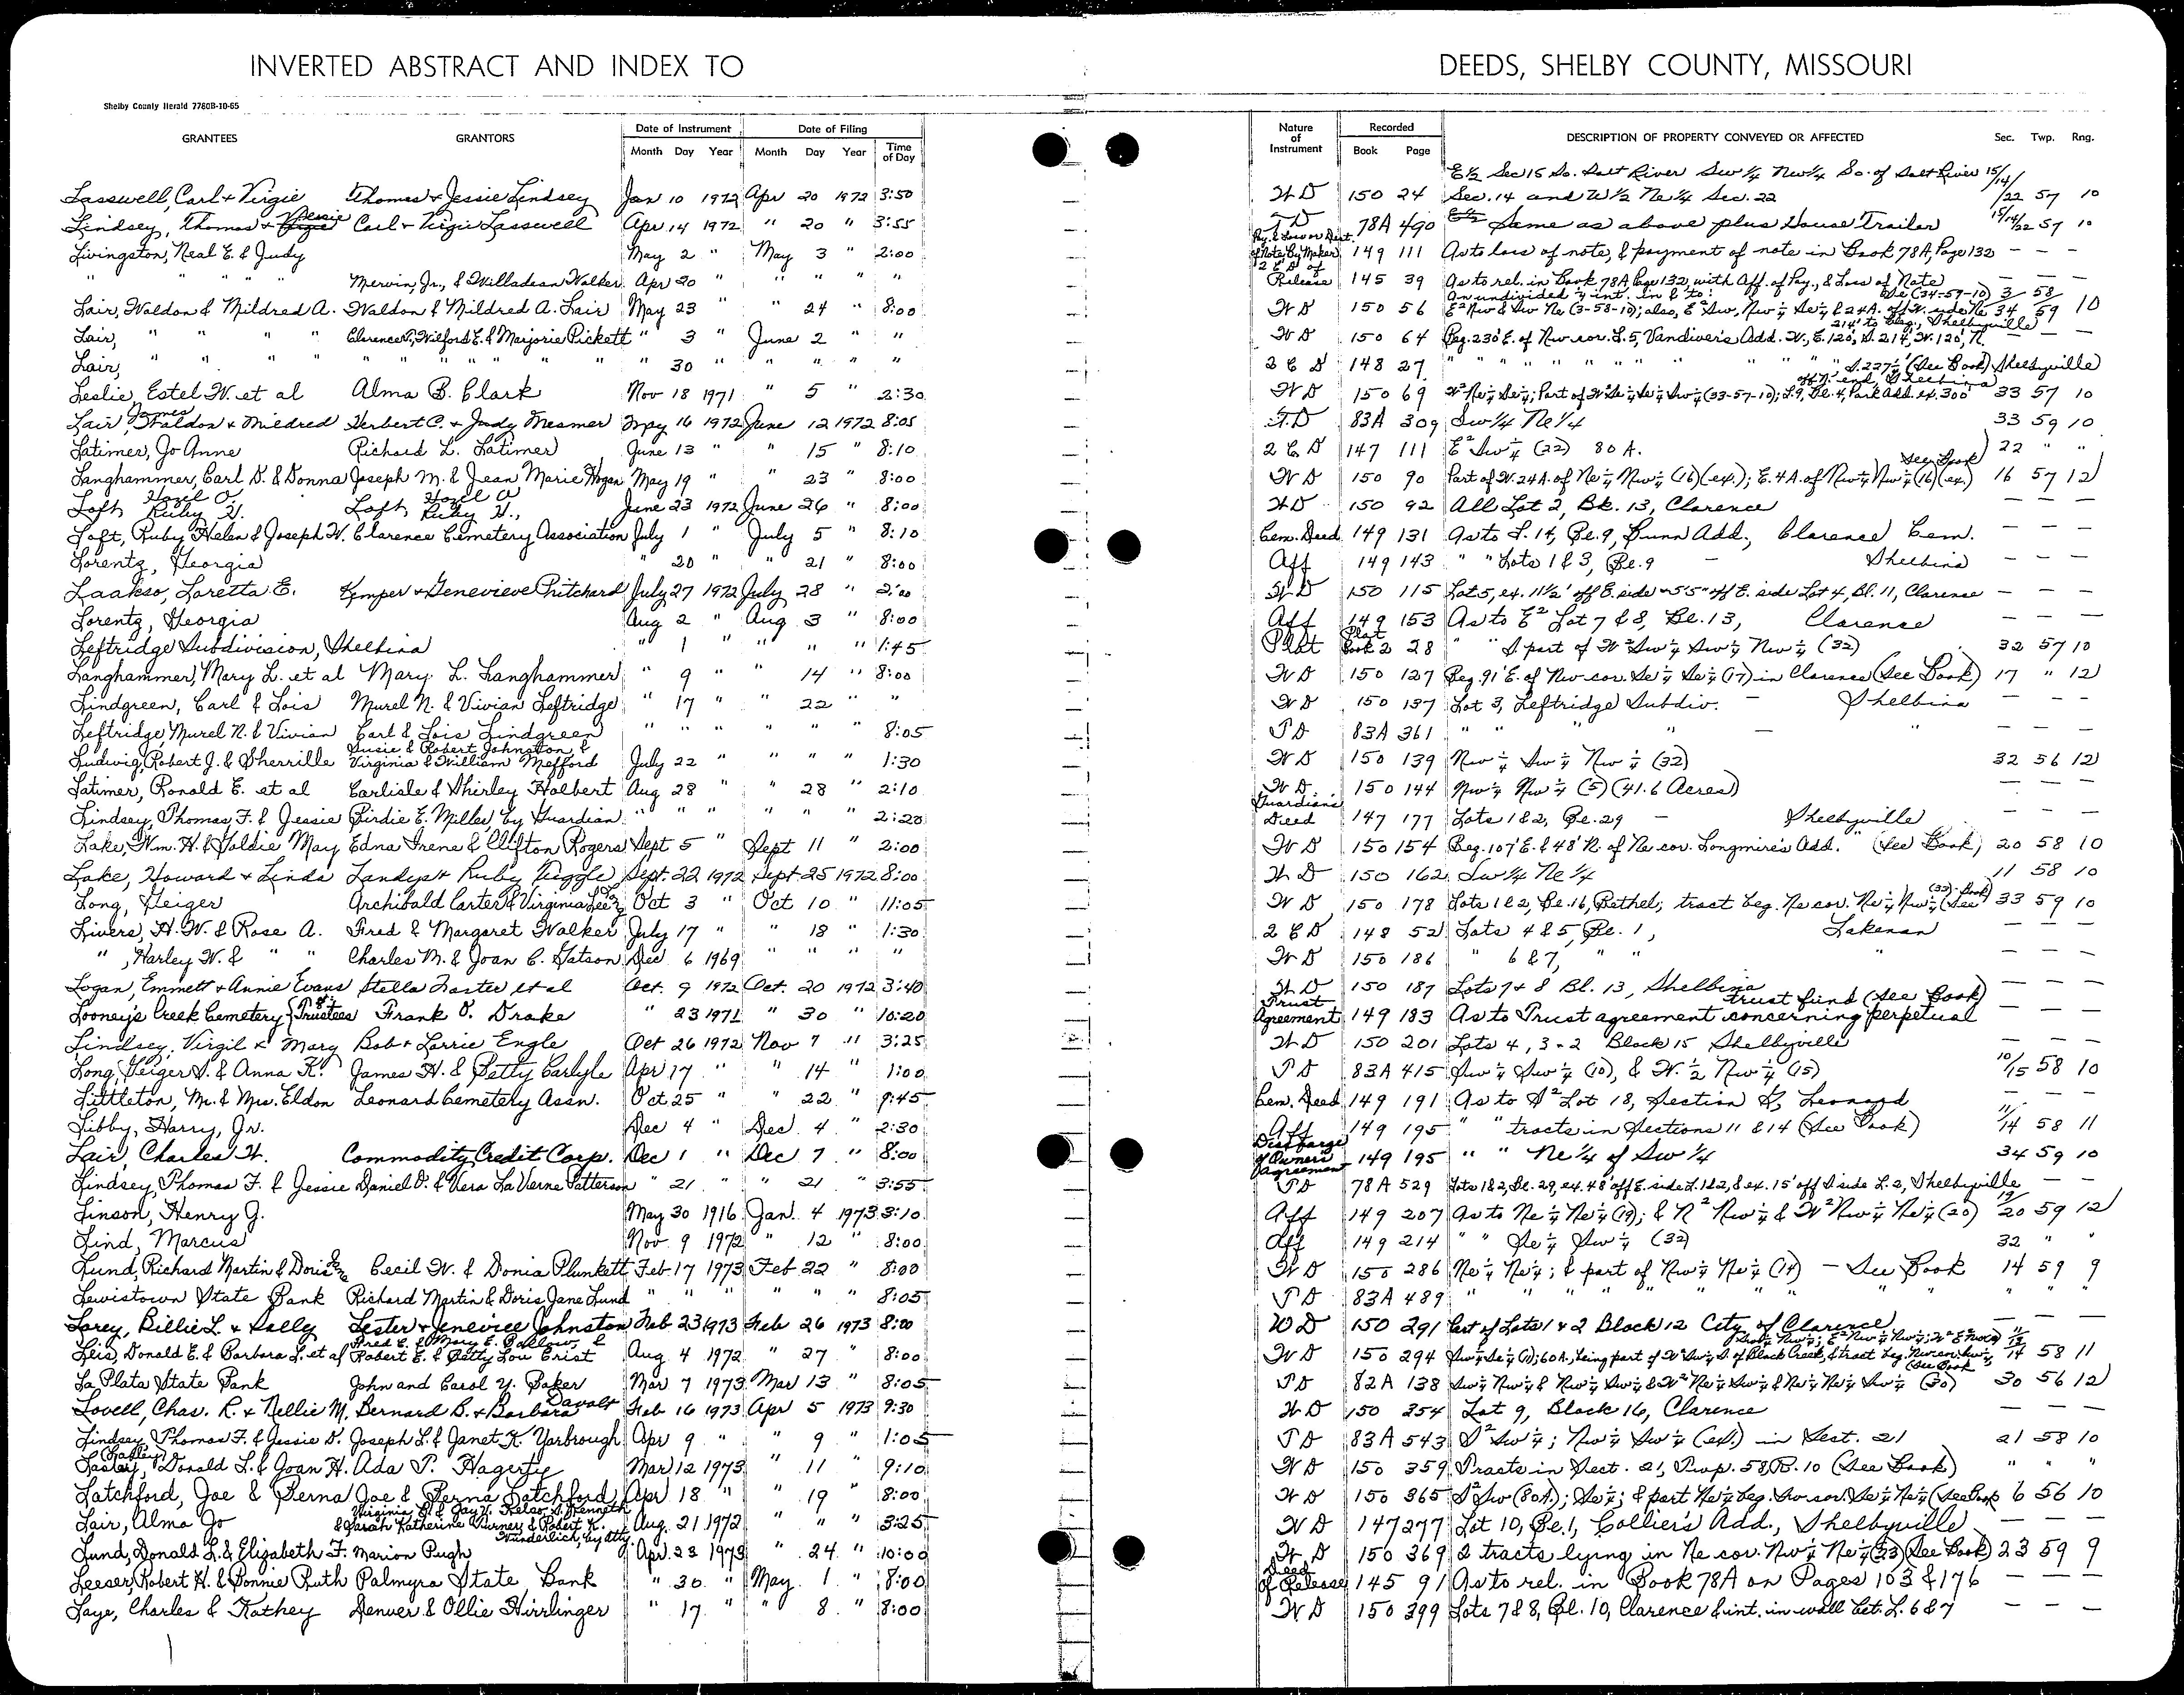 INVERTED ABSTRACT AND INDEX TO DEEDS, SHELBY COUNTY, MISSOURI
Shelby County Herald 7760B-10-65
GRANTEES GRANTORS Date of Instrument Date of Filing Nature of Instrument Recorded DESCRIPTION OF PROPERTY CONVEYED OR AFFECTED Sec. Twp. Rng.
Month Day Year Month Day Year Time of Day Book Page
E½ Sec 15 So. Salt River Sw¼ Nw¼ So. of Salt River 15/14/
Lasswell, Carl + Virgie Thomas + Jessie Lindsey Jan 10 1972 Apr 20 1972 3:50 WD 150 24 Sec. 14 and W½ Ne¼ Sec. 22 /22 57 10
Lindsey, Thomas + Jessie Carl + Virgie Lasswell Apr 14 1972 " 20 " 3:55 TD 78A 490 Same as above plus House Trailer 15/14/22 57 10
Livingston, Neal E. & Judy May 2 " May 3 " 2:00 of Note By Maker 149 111 As to loss of note, & payment of note in Book 78A, Page 132 — —
" " " " Mervin, Jr., & Willadean Walker Apr 20 " " " " " 2 E D of Release 145 39 As to rel. in Book 78A Page 132, with Aff. of Pay. & Loss of Note — —
An undivided ½ int. in & to:
Lair, Waldon & Mildred A. Waldon & Mildred A. Lair May 23 " " 24 " 8:00 WD 150 56 E² Nw & Sw Ne (3-58-10); also, E² Sw, Nw¼ Se¼ & 24A. off W. side Ne Se (34-59-10) 3/34 58/59 10
Lair, " " " Clarence, Wilford E. & Marjorie Pickett " 3 " June 2 " " WD 150 64 Beg. 230' E. of Nw cor. L. 5, Vandiver's Add. W., E. 120', S. 214', W. 120', N. 214' to beg., Shelbyville — —
Lair, " " " " " " " " 30 " " " " 2 C D 148 27 " " " " " " " " " S. 227½' (See Book) Shelbyville
Leslie, Estel W. et al Alma B. Clark Nov 18 1971 " 5 " 2:30 WD 150 69 W² Ne¼ Se¼; Part of W² Se¼ Se¼ Sw¼ (33-57-10); L. 9, Bl. 4, Park Add. ex. 300' off N. end, Shelbina 33 57 10
Lair, James Waldon + Mildred Herbert C. + Judy Mesmer May 16 1972 June 12 1972 8:05 T.D 83A 309 Sw¼ Ne¼ 33 59 10
Latimer, Jo Anne Richard L. Latimer June 13 " " 15 " 8:10 2 C D 147 111 E² Sw¼ (22) 80 A. 22 " "
Langhammer, Carl D. & Donna Joseph M. & Jean Marie Hogan May 19 " " 23 " 8:00 WD 150 90 Part of W. 24A. of Ne¼ Nw¼ (16) (ex.); E. 4 A. of Nw¼ Nw¼ (16) (ex.) See Book 16 57 12
Loft, Hazel O. Ruby H. Loft, Hazel O. Ruby H., June 23 1972 June 26 " 8:00 WD 150 92 All Lot 2, Bk. 13, Clarence — — —
Loft, Ruby Helen & Joseph W. Clarence Cemetery Association July 1 " July 5 " 8:10 Cem. Deed 149 131 As to L. 14, Bl. 9, Bunn Add., Clarence Cem. — — —
Lorentz, Georgia " 20 " " 21 " 8:00 Aff 149 143 " " Lots 1 & 3, Bl. 9 — Shelbina — — —
Laakso, Loretta E. Kemper + Genevieve Pritchard July 27 1972 July 28 " 2:00 WD 150 115 Lot 5, ex. 11½' off E. side - 55' off E. side Lot 4, Bl. 11, Clarence — — —
Lorentz, Georgia Aug 2 " Aug 3 " 8:00 Aff 149 153 As to E² Lot 7 & 8, Bl. 13, Clarence — — —
Leftridge Subdivision, Shelbina " 1 " " " " 1:45 Plat Plat Book 2 28 " " S part of W² Sw¼ Sw¼ Nw¼ (32) 32 57 10
Langhammer, Mary L. et al Mary L. Langhammer " 9 " " 14 " 8:00 WD 150 127 Beg. 91' E. of Nw cor. Se¼ Se¼ (17) in Clarence (See Book) 17 " 12
Lindgreen, Carl & Lois Murel N. & Vivian Leftridge " 17 " " 22 " WD 150 137 Lot 3, Leftridge Subdiv. — Shelbina — — —
Leftridge, Murel N. & Vivian Carl & Lois Lindgreen " " " " " " 8:05 TD 83A 361 " " " — " — —
Ludwig, Robert J. & Sherrille Susie & Robert Johnston & Virginia & William Mefford July 22 " " " " 1:30 WD 150 139 Nw¼ Sw¼ Nw¼ (32) 32 56 12
Latimer, Ronald E. et al Carlisle & Shirley Holbert Aug 28 " " 28 " 2:10 WD 150 144 Nw¼ Nw¼ (5) (41.6 Acres) — — —
Lindsey, Thomas F. & Jessie Birdie E. Miller, by Guardian " " " " " " 2:20 Guardians Deed 147 177 Lots 1 & 2, Bl. 29 — Shelbyville — — —
Lake, Wm. H. & Goldie May Edna Irene & Clifton Rogers Sept 5 " Sept 11 " 2:00 WD 150 154 Beg. 107' E. & 48' N. of Ne cor. Longmire's Add. " (See Book) 20 58 10
Lake, Howard + Linda Landys + Ruby Piggle Sept. 22 1972 Sept 25 1972 8:00 WD 150 162 Sw¼ Ne¼ 11 58 10
Long, Geiger Archibald Carter & Virginia Lee Oct 3 " Oct 10 " 11:05 WD 150 178 Lots 1 & 2, Bl. 16, Bethel; tract beg. Ne cor. Ne¼ Nw¼ (33) (See Book) 33 59 10
Livers, H. W. & Rose A. Fred & Margaret Walker July 17 " " 18 " 1:30 2 C D 148 52 Lots 4 & 5, Bl. 1, Lakenan — — —
" , Harley W. & " " Charles M. & Joan C. Watson Dec 6 1969 " " " " WD 150 186 " 6 & 7, " " " — — —
Logan, Emmett + Annie Evans Stella Foster et al Oct. 9 1972 Oct. 20 1972 3:40 WD 150 187 Lots 7 + 8 Bl. 13, Shelbina — — —
Looney's Creek Cemetery Trustees Frank O. Drake " 23 1971 " 30 " 10:20 Trust Agreement 149 183 As to Trust agreement concerning perpetual trust fund (See Book) — — —
Lindsey, Virgil + Mary Bob + Lorrie Engle Oct 26 1972 Nov 7 " 3:25 WD 150 201 Lots 4, 3 - 2 Block 15 Shelbyville — — —
Long, Geiger S. & Anna K. James H. & Betty Carlyle Apr 17 " " 14 " 1:00 TD 83A 415 Sw¼ Sw¼ (10), & W. ½ Nw¼ (15) 10/15 58 10
Littleton, Mr. & Mrs. Eldon Leonard Cemetery Assn. Oct 25 " " 22 " 9:45 Cem. Deed 149 191 As to S² Lot 18, Section K, Leonard — — —
Libby, Harry, Jr. Dec 4 " Dec. 4 " 2:30 Aff 149 195 " " tracts in Sections 11 & 14 (See Book) 11/14 58 11
Lair, Charles H. Commodity Credit Corp. Dec 1 " Dec 7 " 8:00 Discharge of Owners Agreement 149 195 " " Ne¼ of Sw¼ 34 59 10
Lindsey, Thomas F. & Jessie Daniel D. & Vera La Verne Patterson " 21 " " 21 " 3:55 TD 78A 529 Lots 1 & 2, Bl. 29, ex. 48' off E. side L. 1 & 2, & ex. 15' off S side L. 2, Shelbyville — —
Linson, Henry J. May 30 1916 Jan. 4 1973 3:10 Aff 149 207 As to Ne¼ Ne¼ (19); & N² Nw¼ & W² Nw¼ Ne¼ (20) 19/20 59 12
Lind, Marcus Nov. 9 1972 " 12 " 8:00 Aff 149 214 " " Se¼ Sw¼ (32) 32 " "
Lund, Richard Martin & Doris Jane Cecil W. & Donia Plunkett Feb 17 1973 Feb 22 " 8:00 WD 150 286 Ne¼ Ne¼; & part of Nw¼ Ne¼ (14) — See Book 14 59 9
Lewistown State Bank Richard Martin & Doris Jane Lund " " " " " " 8:05 TD 83A 489 " " " " " " " " " " "
Lorey, Billie L. + Sally Lester + Jenevieve Johnston Feb 23 1973 Feb 26 1973 8:00 WD 150 291 Part of Lots 1 + 2 Block 12 City of Clarence — —
Leis, Donald E. & Barbara L. et al Fred E. & Mary E. Ballow, & Robert E. & Betty Lou Crist Aug 4 1972 " 27 " 8:00 WD 150 294 Sw¼ Se¼ (11); 60 A., being part of W² Sw¼ S. of Black Creek, & tract beg. (See Book 14 58 11
La Plata State Bank John and Carol Y. Baker Mar 7 1973 Mar 13 " 8:05 TD 82A 138 Sw¼ Nw¼ & Nw¼ Sw¼ & W² Ne¼ Sw¼ & Ne¼ Ne¼ Sw¼ (30) 30 56 12
Lovell, Chas. R. + Nellie M. Bernard B. + Barbara Davolt Feb 16 1973 Apr 5 1973 9:30 WD 150 354 Lot 9, Block 16, Clarence — — —
Lindsey, Thomas F. & Jessie D. Joseph L. & Janet K. Yarbrough Apr 9 " " 9 " 1:05 TD 83A 543 S² Sw¼; Nw¼ Sw¼ (ex.) in Sect. 21 21 58 10
Donald L. & Joan H. Ada P. Hagerty Mar 12 1973 " 11 " 9:10 WD 150 359 Tracts in Sect. 21, Twp. 58, R. 10 (See Book) " " "
Latchford, Joe & Berna Joe & Berna Latchford Apr 18 " " 19 " 8:00 WD 150 365 S² Sw (80A.); Se¼; & part Ne¼ beg. Sw cor. Se¼ Ne¼ (See Book 6 56 10
Lair, Alma Jo Virginia & Jay V. Kelso, & Kenneth & Sarah Katherine Turner & Robert K. Wunderlich, by Atty. Aug. 21 1972 " " " 3:25 WD 147 277 Lot 10, Bl. 1, Collier's Add., Shelbyville — — —
Lund, Donald L. & Elizabeth F. Marion Pugh Apr. 23 1973 " 24 " 10:00 WD 150 369 2 tracts lying in Ne cor. Nw¼ Ne¼ (23) (See Book) 23 59 9
Leeser, Robert H. & Bonnie Ruth Palmyra State Bank " 30 " May 1 " 8:00 Deed of Release 145 91 As to rel. in Book 78A on Pages 103 & 176 — — —
Laye, Charles & Kathey Denver & Ollie Hirrlinger " 17 " " 8 " 8:00 WD 150 399 Lots 7 & 8, Bl. 10, Clarence & int. in wall bet. L. 6 & 7 — —